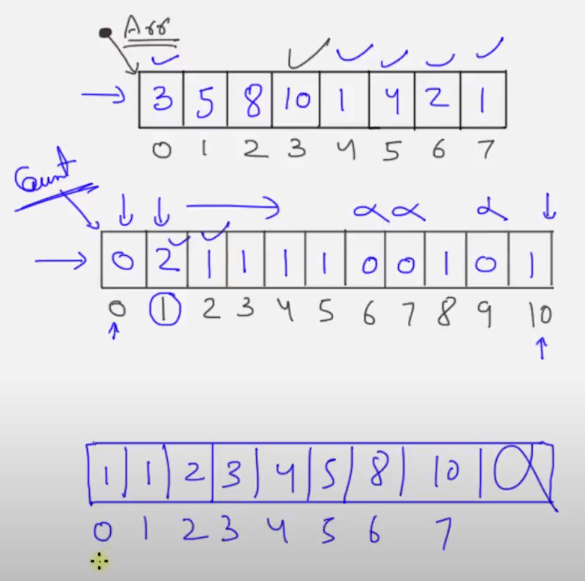 Arr
3 5 8 10 1 4 2 1
0 1 2 3 4 5 6 7
Count
0 2 1 1 1 1 0 0 1 0 1
0 1 2 3 4 5 6 7 8 9 10
1 1 2 3 4 5 8 10
0 1 2 3 4 5 6 7